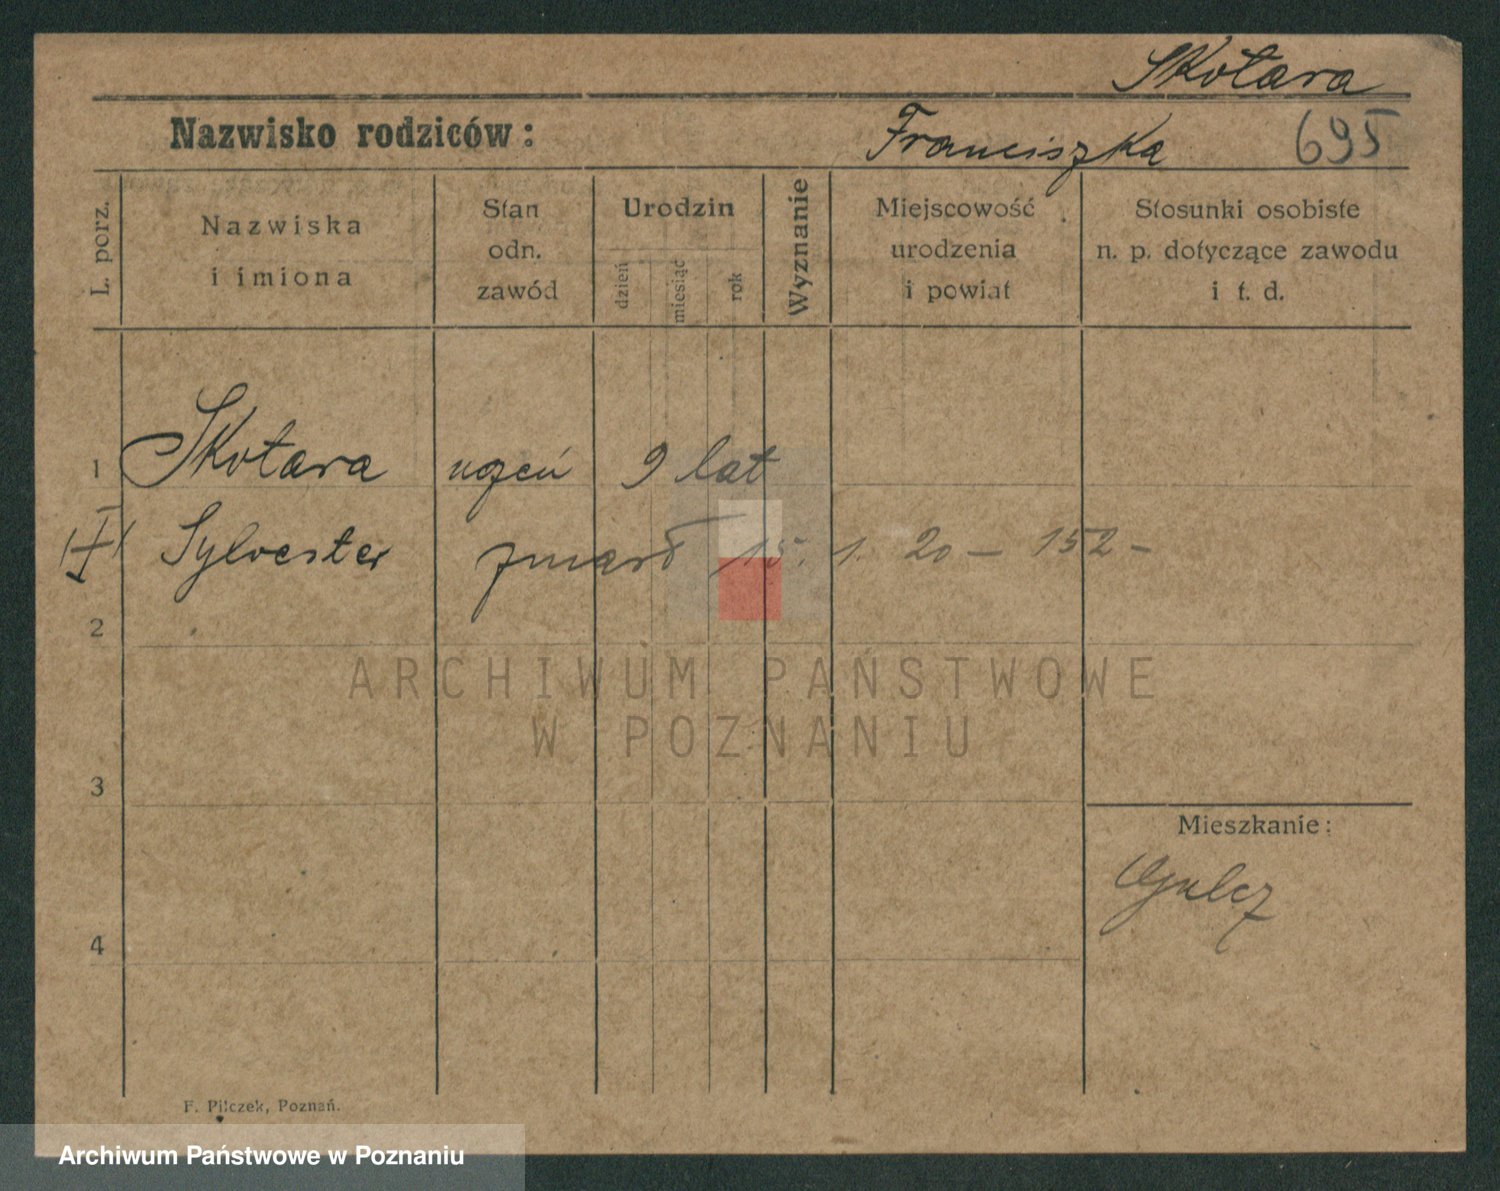 Skotara
Nazwisko rodziców:
Franciszka 695
L. porz.
Nazwiska
i imiona
Stan
odn.
zawód
Urodzin
dzień
miesiąc
rok
Wyznanie
Miejscowość
urodzenia
i powiat
Stosunki osobiste
n. p. dotyczące zawodu
i t. d.
1 Skotara uczeń 9 lat
Sylvester zmarł 15. 1. 20 – 152 –
2
ARCHIWUM PAŃSTWOWE
W POZNANIU
3
Mieszkanie:
Gulcz
4
F. Pilczek, Poznań.
Archiwum Państwowe w Poznaniu